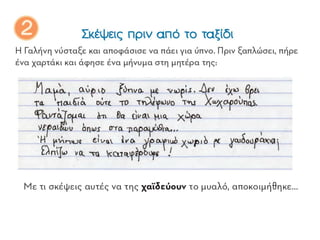 2
Σκέψεις πριν από το ταξίδι
Η Γαλήνη νύσταξε και αποφάσισε να πάει για ύπνο. Πριν ξαπλώσει, πήρε
ένα χαρτάκι και άφησε ένα μήνυμα στη μητέρα της:
Μαμά, αύριο ξύπνα με νωρίς. Δεν έχω βρει
τα παιδιά ούτε το τηλέφωνο της Χωχαρούπας.
Φαντάζομαι ότι θα είναι μια χώρα
νεράιδων όπως στα παραμύθια...
Ή μήπως είναι ένα γραφικό χωριό με γαϊδουράκια;
Ελπίζω να τα καταφέρουμε!
Με τι σκέψεις αυτές να της χαϊδεύουν το μυαλό, αποκοιμήθηκε...